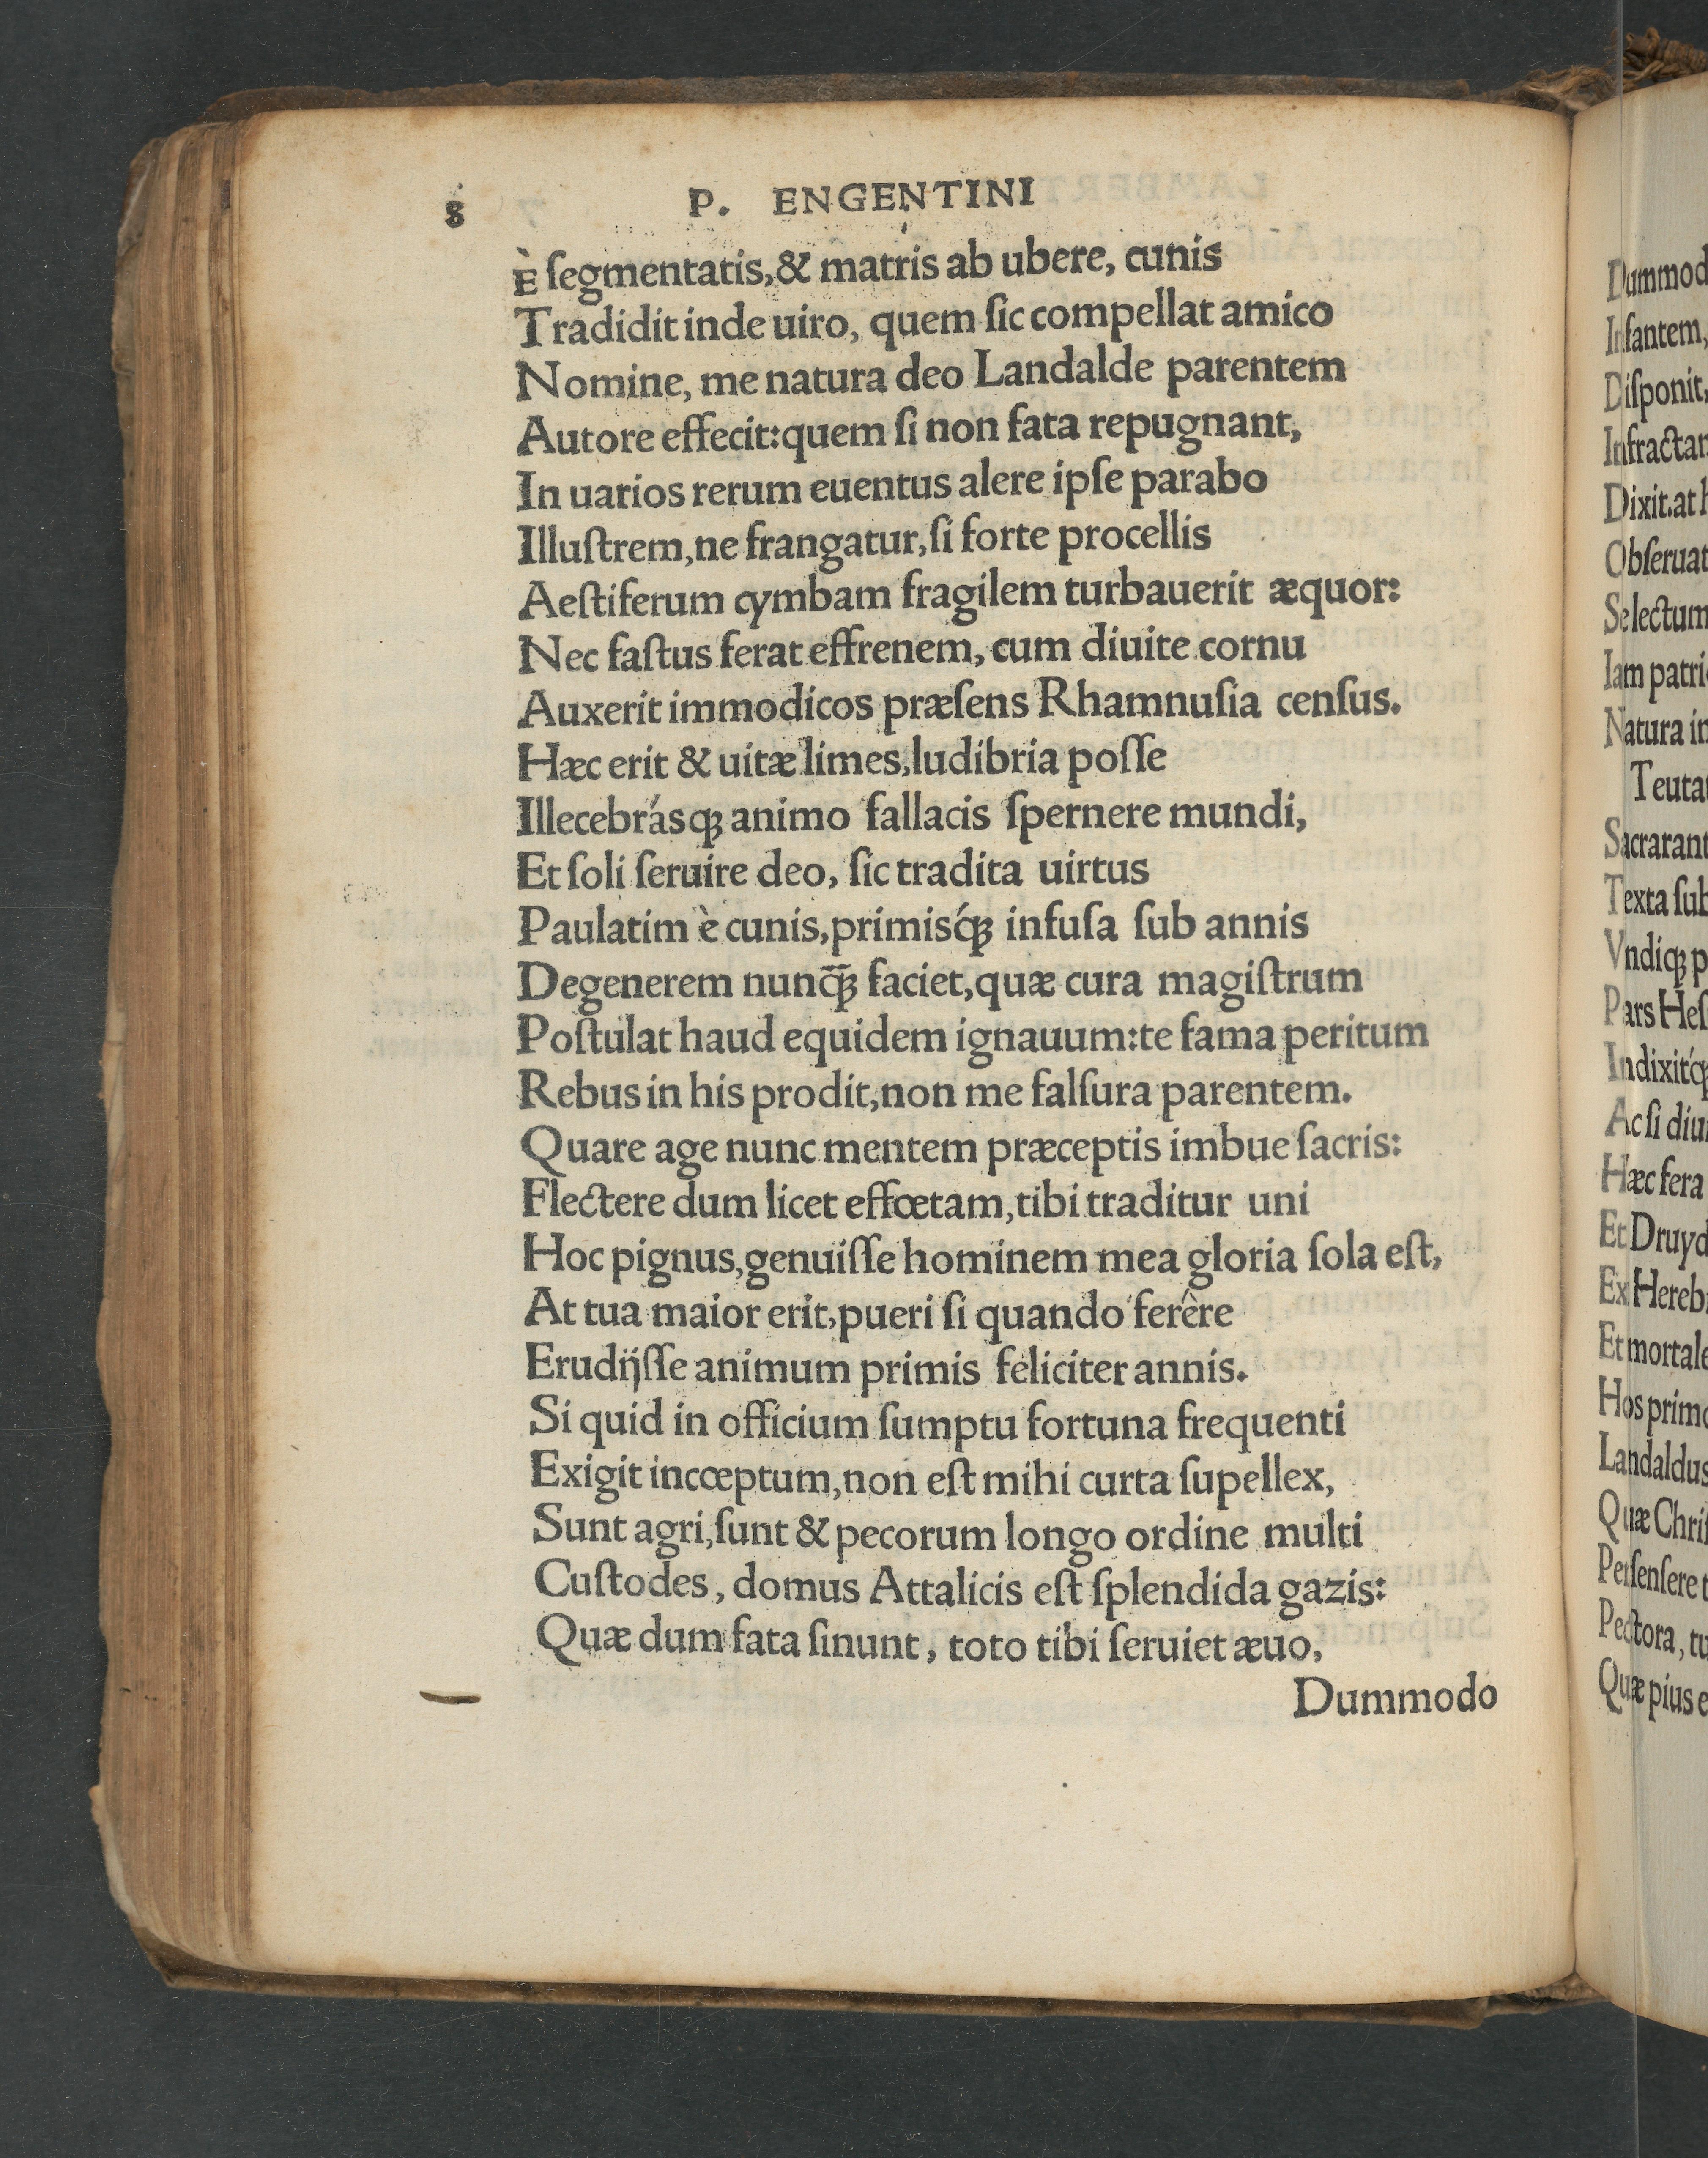 8 P. ENGENTINI
È ſegmentatis,& matris ab ubere, cunis
Tradidit inde uiro, quem ſic compellat amico
Nomine, me natura deo Landalde parentem
Autore effecit:quem ſi non fata repugnant,
In uarios rerum euentus alere ipſe parabo
Illuſtrem,ne frangatur,ſi forte procellis
Aeſtiferum cymbam fragilem turbauerit æquor:
Nec faſtus ferat effrenem, cum diuite cornu
Auxerit immodicos præſens Rhamnuſia cenſus.
Hæc erit & uitæ limes,ludibria poſſe
Illecebrásqꝫ animo fallacis ſpernere mundi,
Et ſoli ſeruire deo, ſic tradita uirtus
Paulatim è cunis,primisq́ꝫ infuſa ſub annis
Degenerem nunq̄ꝫ faciet,quæ cura magiſtrum
Poſtulat haud equidem ignauum:te fama peritum
Rebus in his prodit,non me falſura parentem.
Quare age nunc mentem præceptis imbue ſacris:
Flectere dum licet effœtam,tibi traditur uni
Hoc pignus,genuiſſe hominem mea gloria ſola eſt,
At tua maior erit,pueri ſi quando ferêre
Erudijſſe animum primis feliciter annis.
Si quid in officium ſumptu fortuna frequenti
Exigit incœptum,non eſt mihi curta ſupellex,
Sunt agri,ſunt & pecorum longo ordine multi
Cuſtodes, domus Attalicis eſt ſplendida gazis:
Quæ dum fata ſinunt, toto tibi ſeruiet æuo,
Dummodo